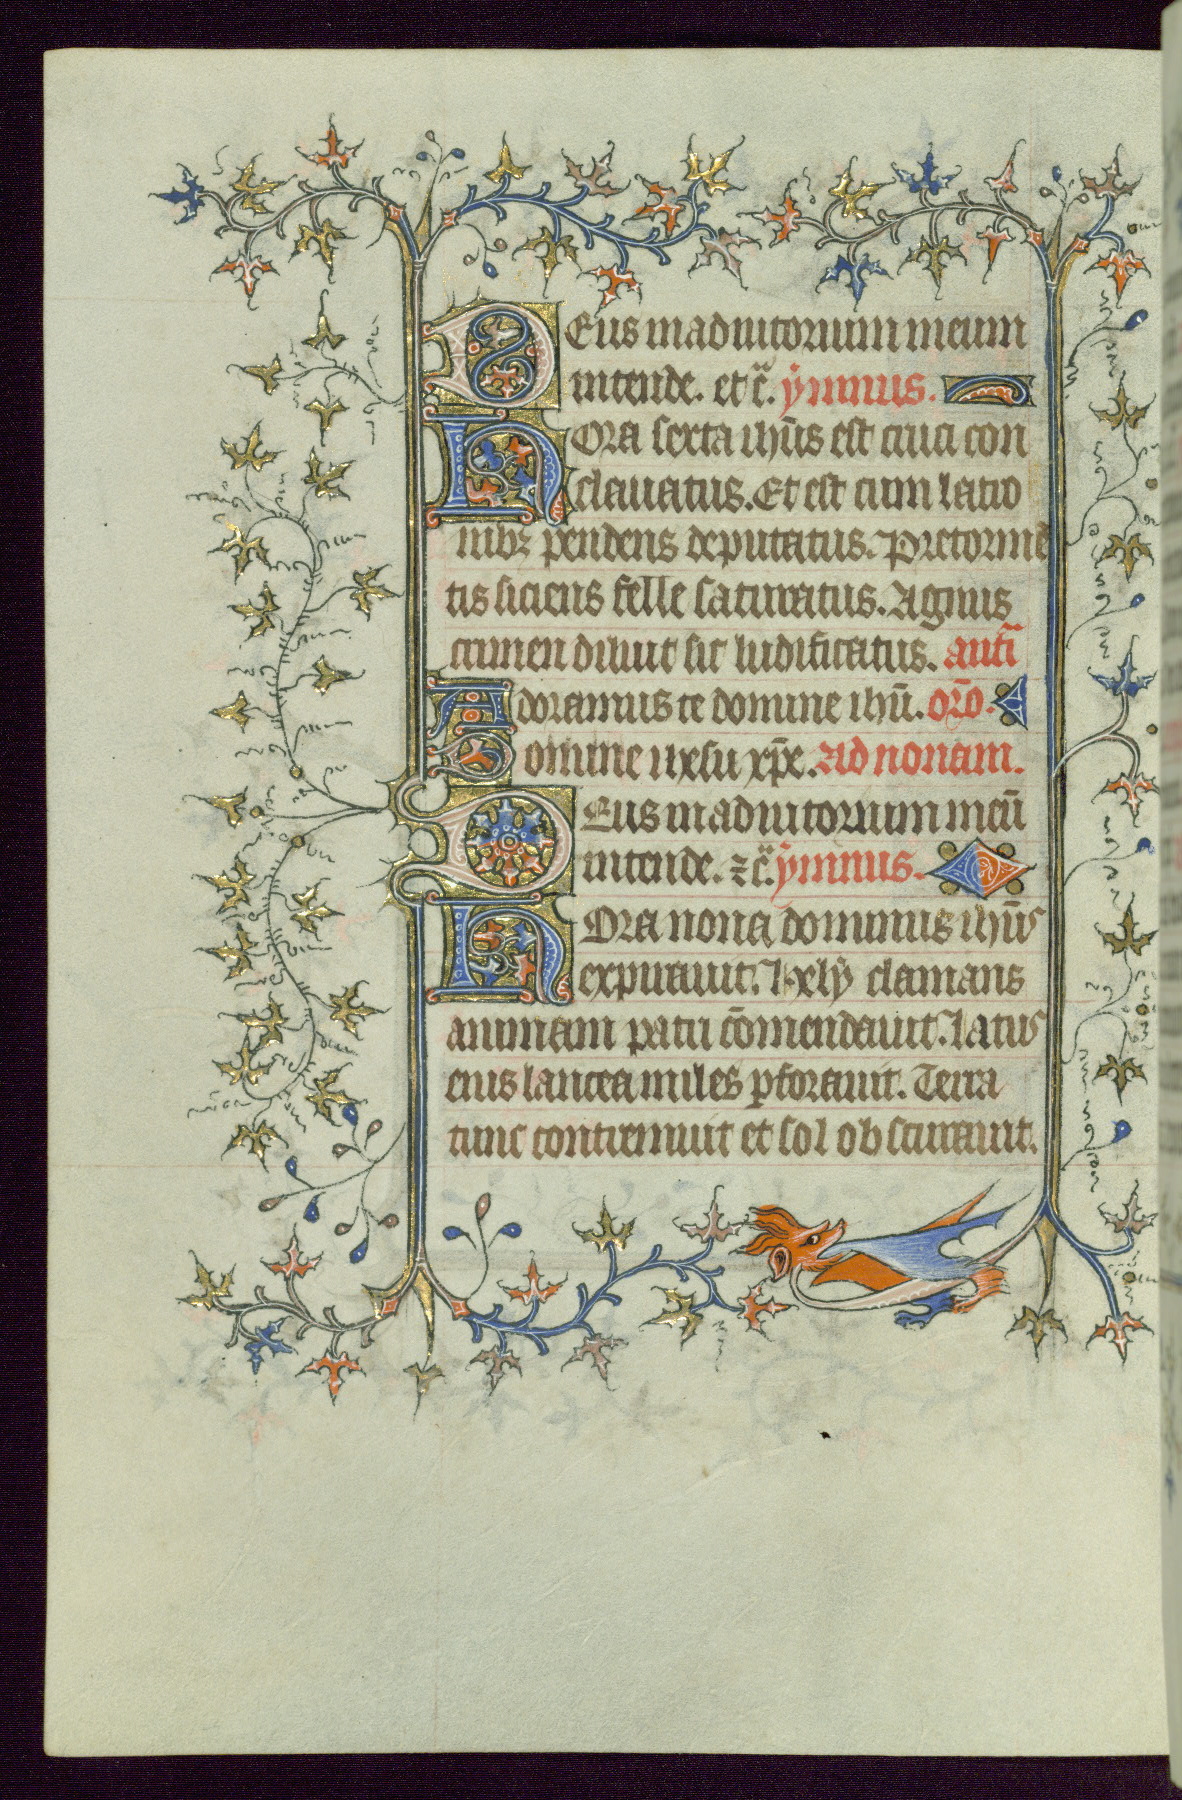 Deus in adiutorium meum
intende. et c̃. ẏmnus.
Hora sexta ihūs est cruci con
clauatus. Et est cum latro
nibꝫ pendens deputatus. Pre tormē
tis siciens felle saturatus. Agnus
crimen diluit sic ludificatus. antī
Adoramus te domine ihū. orō.
Domine ihesu xp̄e. ad nonam.
Deus in adiutorium meū
intende. ⁊ c̃. ẏmnus.
Hora nona dominus ihūs
expirauit. hely clamans
animam patri cōmendauit. latus
eius lancea miles pforauit. Terra
tunc contremuit et sol obscurauit.